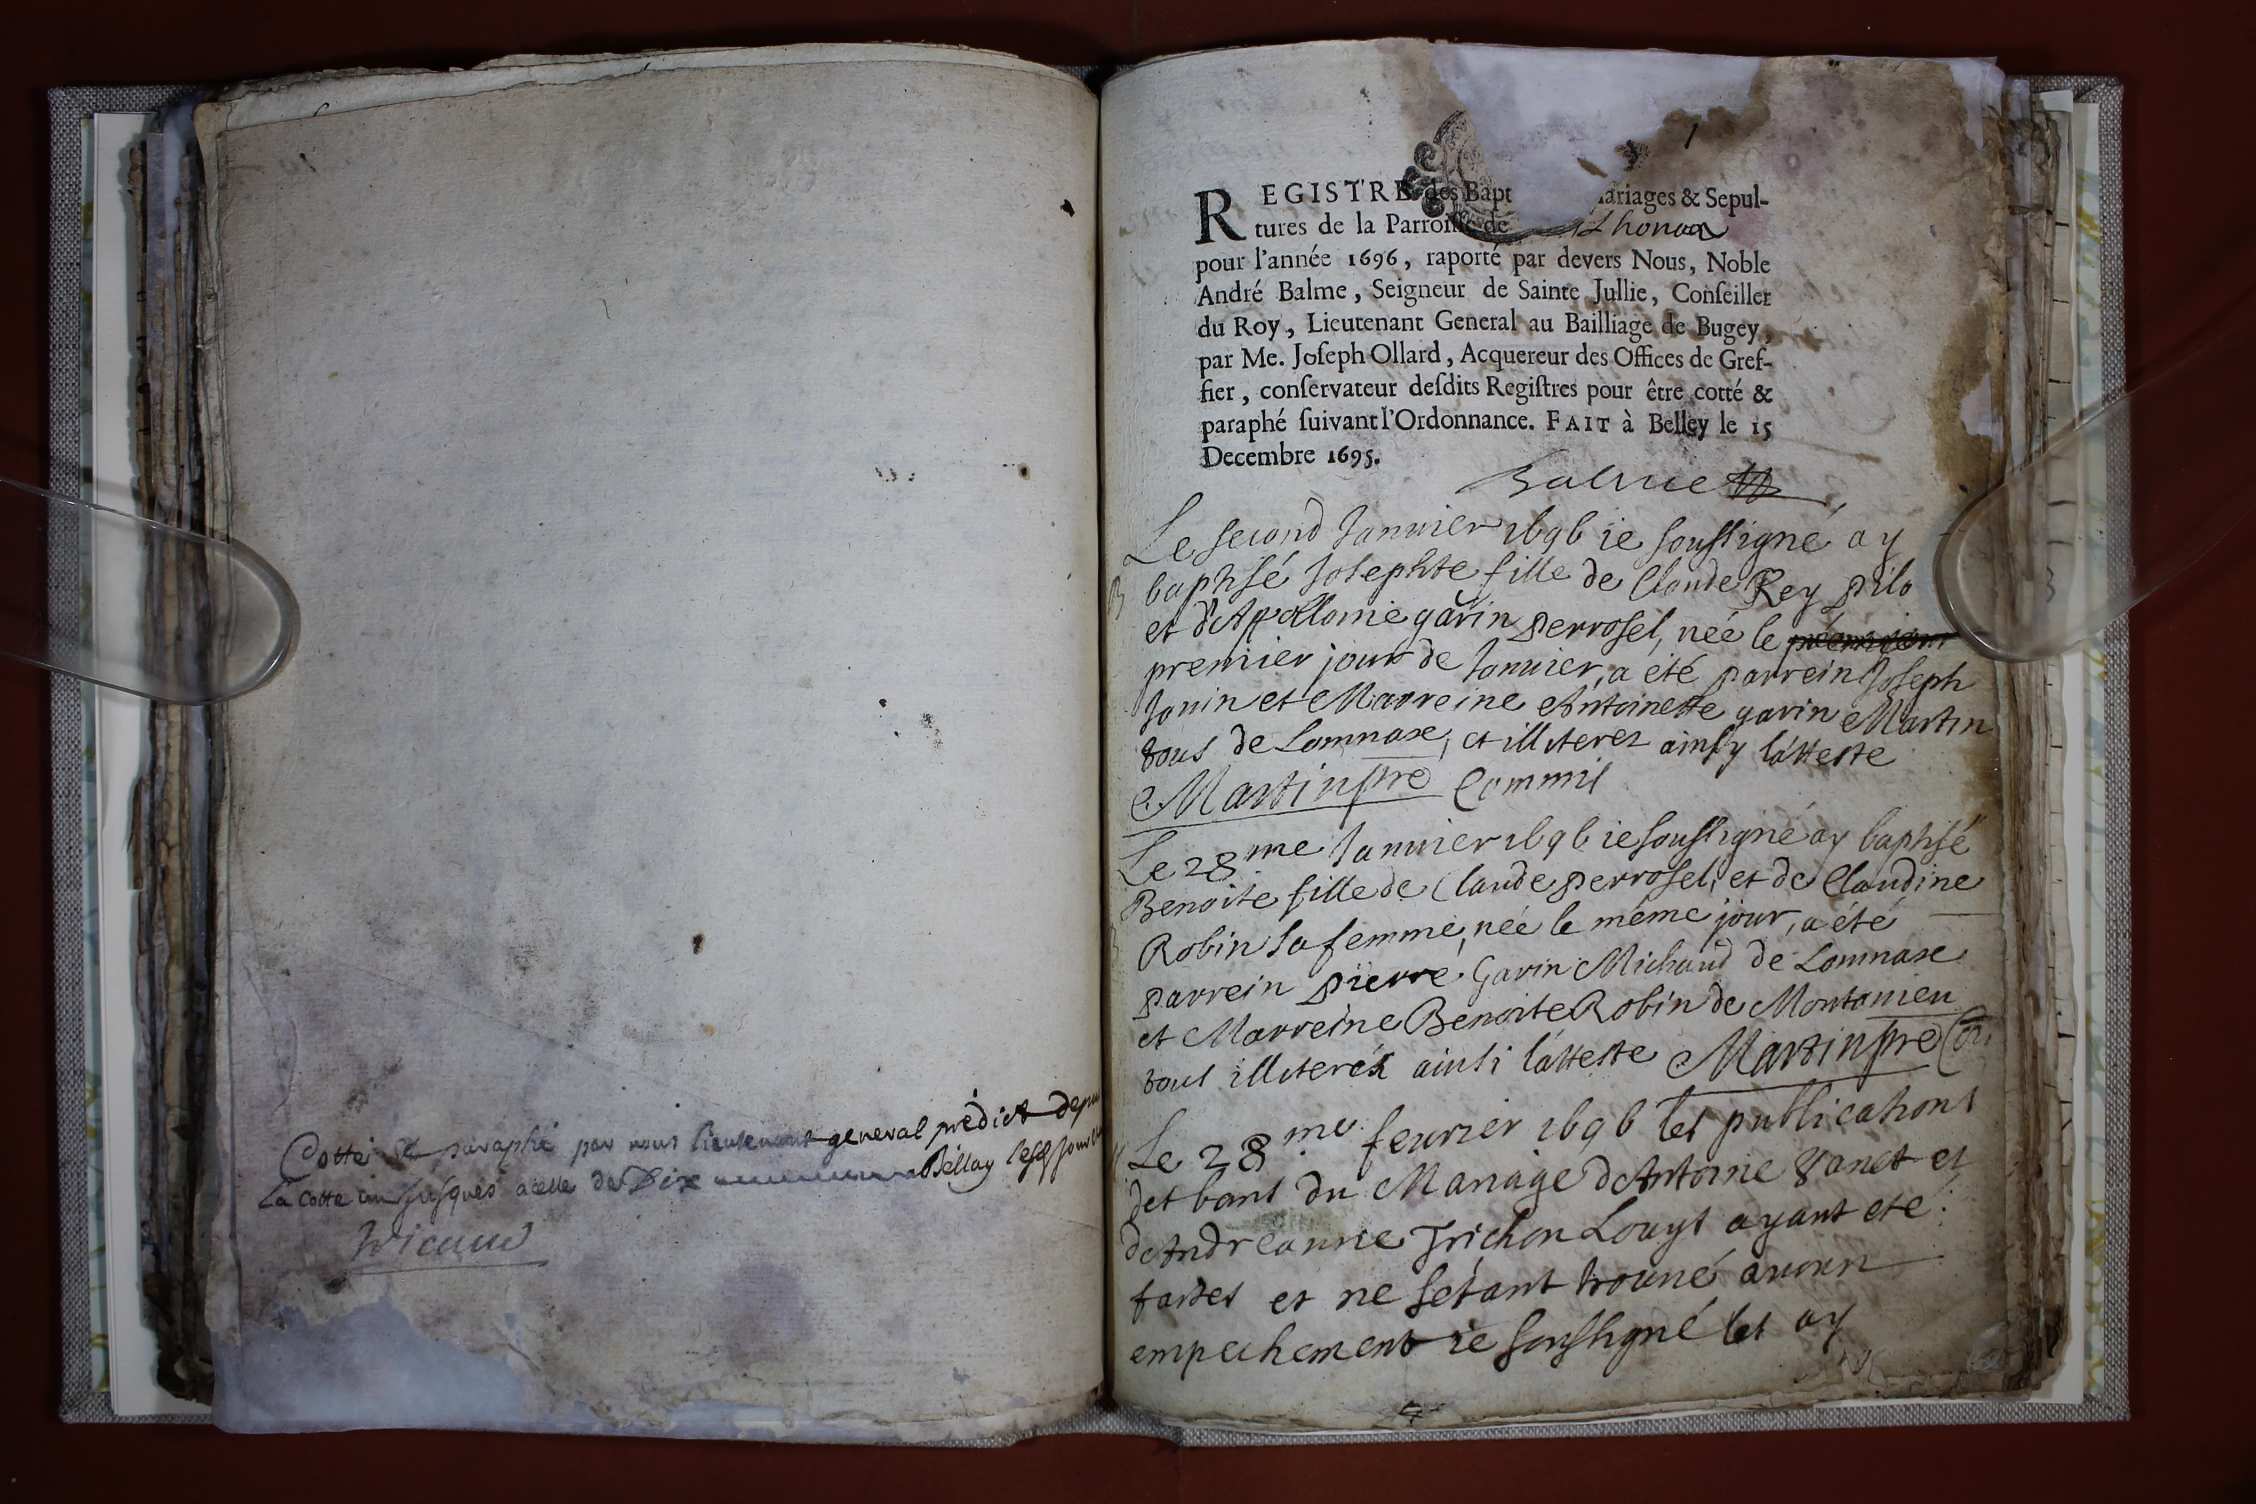 Cotté & paraphé par nous lieutenant general prédict depuis
La cotte un jusques a celle de Dix Bellay le jour
1
REGISTRE des Bapt ariages & Sepul-
tures de la Parroisse de Lhonax
pour l'année 1696, raporté par devers Nous, Noble
André Balme, Seigneur de Sainte Jullie, Conseiller
du Roy, Lieutenant General au Bailliage de Bugey,
par Me. Joseph Ollard, Acquereur des Offices de Gref-
fier, conservateur desdits Registres pour être cotté &
paraphé suivant l'Ordonnance. FAIT à Belley le 15
Decembre 1695.
Balme
Le second Januier 1696 ie soussigné ay
baptisé Josephte fille de Claude Rey pilo
et d'Apollonie garin perrosel, née le
premier jour de Januier, a été parrein Joseph
Jouin et Marreine Antoinette garin Martin
tous de Lomnase, et illiterez ainsy l'atteste
Martin pre Commis
Le 28.me Januier 1696 ie soussigné ay baptisé
Benoite fille de Claude perrosel, et de Claudine
Robin sa femme, née le même jour, a été
parrein pierre Garin Michaud de Lomnase
et Marreine Benoite Robin de Montanieu
tous illiteréz ainsi l'atteste Martin pre
Le 28.me feurier 1696 les publications
des bans du Mariage d'Antoine Janet et
d'Andréanne Trichon Louys ayant eté
faites et ne s'etant trouué aucun
empechement ie soussigné les ay